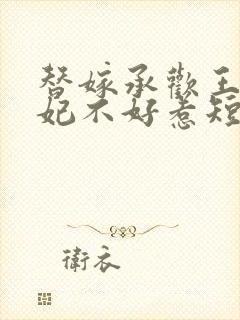 替嫁承歡王
妃不好惹短
衛衣